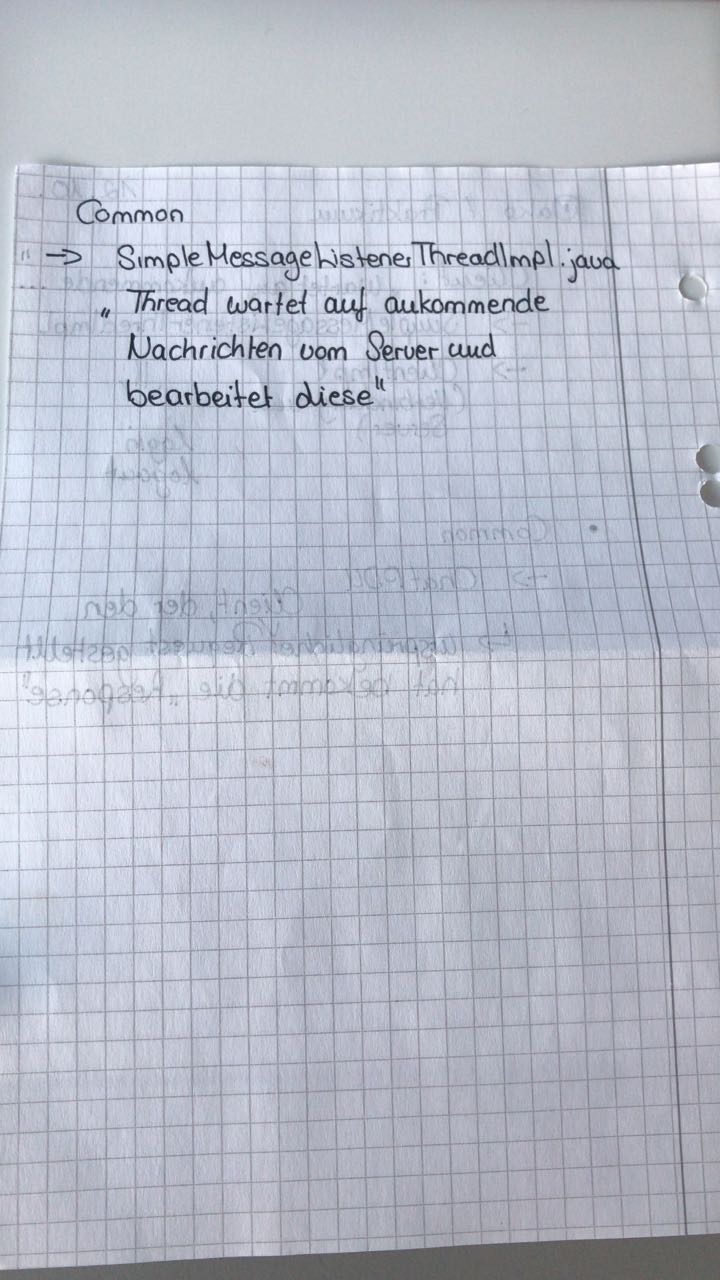 Common
-> SimpleMessageListenerThreadImpl.java
„Thread wartet auf ankommende
Nachrichten vom Server und
bearbeitet diese"